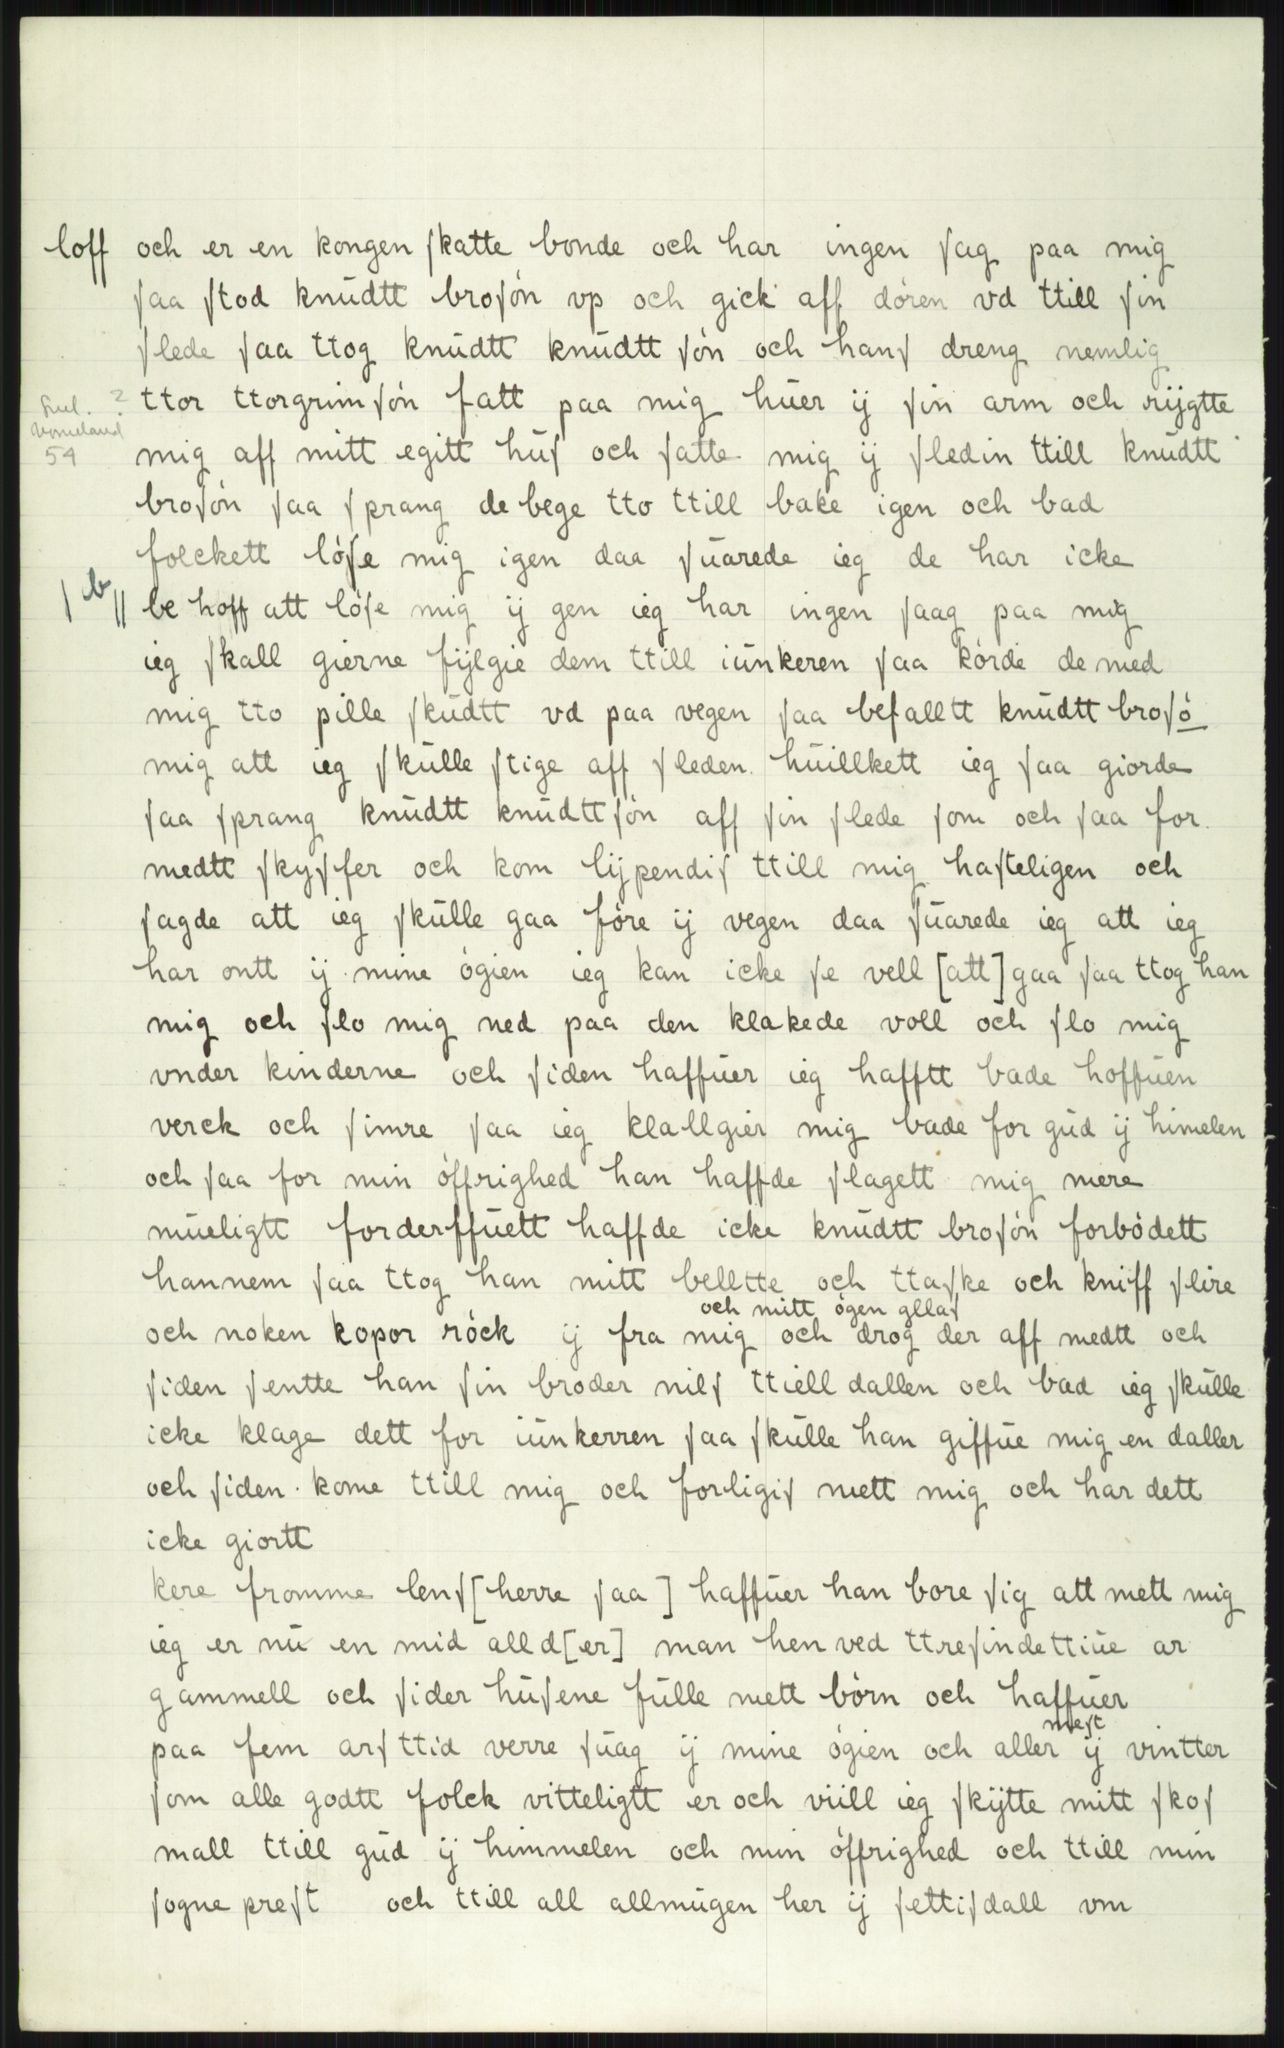 loff och er en kongen ſkatte bonde och har ingen ſag paa mig
ſaa ſtod knŭdtt broſón vp och gick aff dóren vd ttill ſin
ſlede ſaa ttog knŭdtt knŭdtt ſón och hanſ dreng nemlig
ttor ttorgrimſón fatt paa mig hŭer ij ſin arm och rijgtte
?
54
mig aff mitt egitt hŭſ och ſatte mig ij ſledin ttill knŭdtt
broſón ſaa ſprang de bege tto ttill bake igen och bad
folckett lóſe mig igen daa ſŭarede ieg de har icke
| b || be hoff att lóſe mig ij gen ieg har ingen ſaag paa mig
ieg ſkall gierne fijlgie dem ttill iŭnkeren ſaa kórde de med
mig tto pille ſkŭdtt vd paa vegen ſaa befalltt knŭdtt broſó
mig att ieg ſkŭlle ſtige aff ſleden hŭillkett ieg ſaa giorde
ſaa ſprang knŭdtt knŭdttſón aff ſin ſlede ſom och ſaa for
medtt ſkyſfer och kom lijpendiſ ttill mig haſteligen och
ſagde att ieg ſkŭlle gaa fóre ij vegen daa ſŭarede ieg att ieg
har ontt ij mine ógien ieg kan icke ſe vell [att] gaa ſaa ttog han
mig och ſlo mig ned paa den klakede voll och ſlo mig
vnder kinderne och ſiden haffŭer ieg hafftt bade hoffŭen
verck och ſimre ſaa ieg klallgier mig bade for gŭd ij himelen
och ſaa for min óffrighed han haffde ſlagett mig mere
mŭeligtt forderffŭett haffde icke knŭdtt broſón forbódett
hannem ſaa ttog han mitt belltte och ttaſke och kniff ſlire
och mitt ógen gllaſ
och noken kopor róck ij fra mig och drog der aff medtt och
ſiden ſentte han ſin broder nilſ ttiell dallen och bad ieg ſkŭlle
icke klage dett for iŭnkerren ſaa ſkŭlle han giffŭe mig en daller
och ſiden kome ttill mig och forligiſ mett mig och har dett
icke giortt
kere fromme lenſ[herre ſaa] haffŭer han bore ſig att mett mig
ieg er nŭ en mid alld[er] man hen ved ttreſindettiŭe ar
gammell och ſider hŭſene fŭlle mett bórn och haffŭer
meſt
paa fem arſ ttid verre ſŭag ij mine ógien och aller ij vintter
ſom alle godtt folck vitteligtt er och viill ieg ſkijtte mitt ſkoſ
mall ttill gŭd ij himmelen och min óffrighed och ttill min
ſogne preſt och ttill all allmŭgen her ij ſettiſdall vm